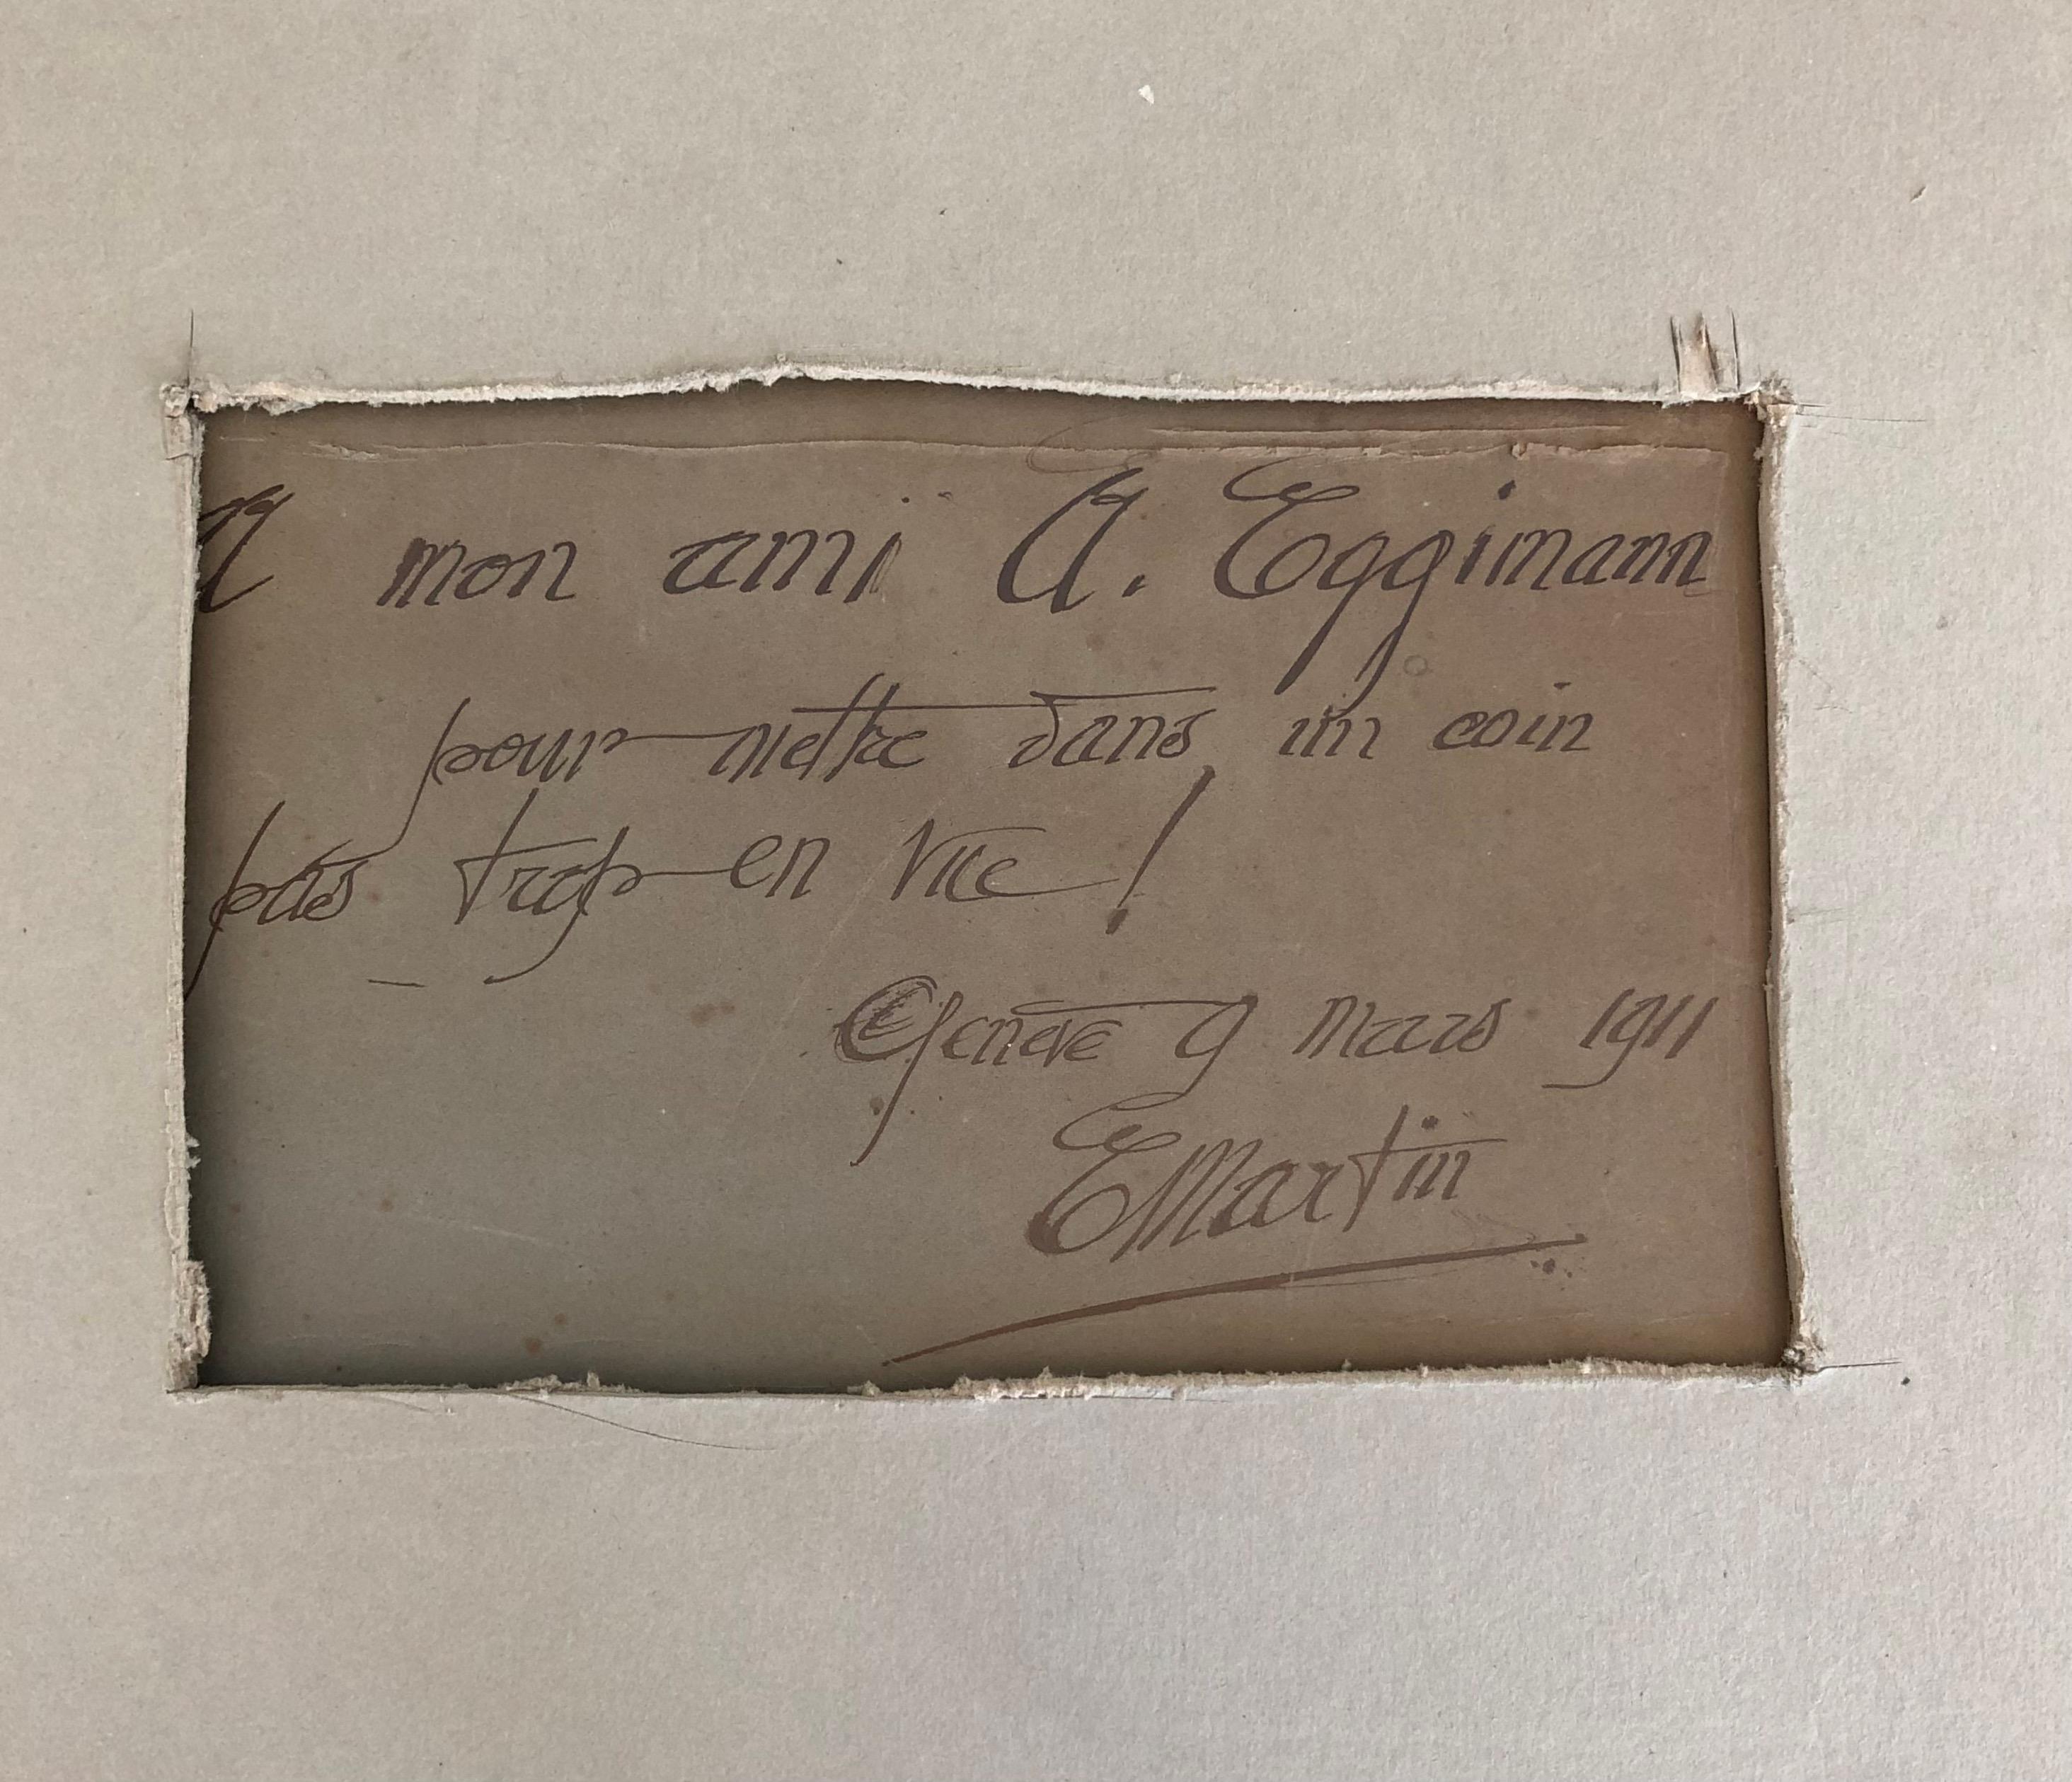 A mon ami A. Eggimann
pour mettre dans un coin
pas trop en vue !
Genève 9 mars 1911
EMartin